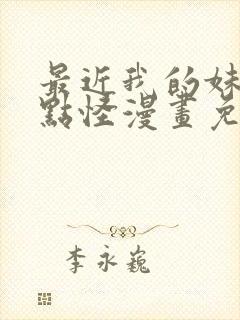 最近我的妹
點怪漫畫免
李永巍